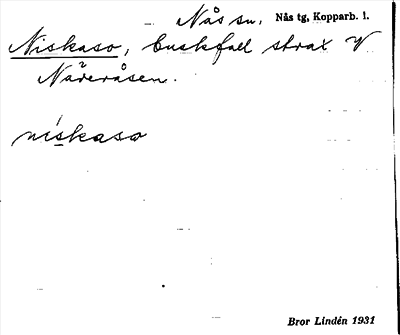 Nås sn. Nås tg, Kopparb. l.
Niskaso, buskfall strax V
Näveråsen.
niskaso
Bror Lindén 1931